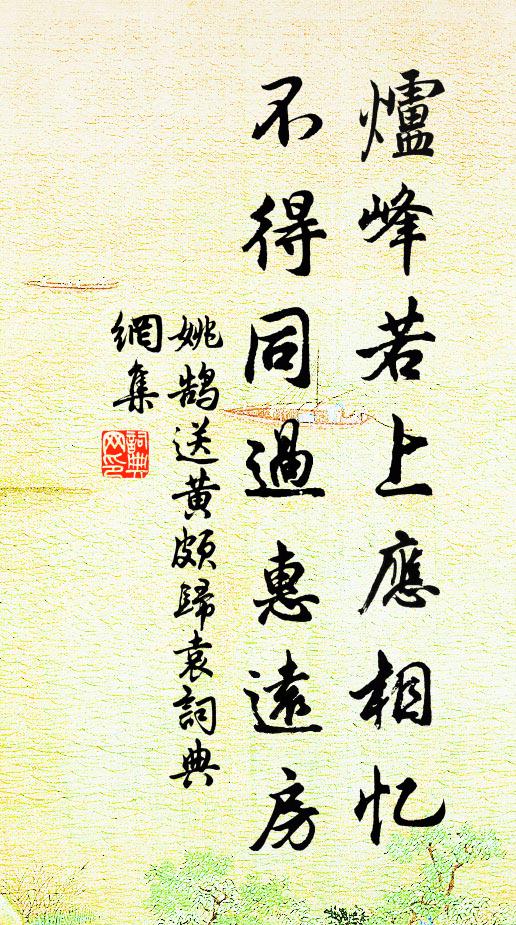 爐峰若上應相忆
不得同過惠遠房
姚鹄送黄頗歸袁詞典
網集
詞典
网印